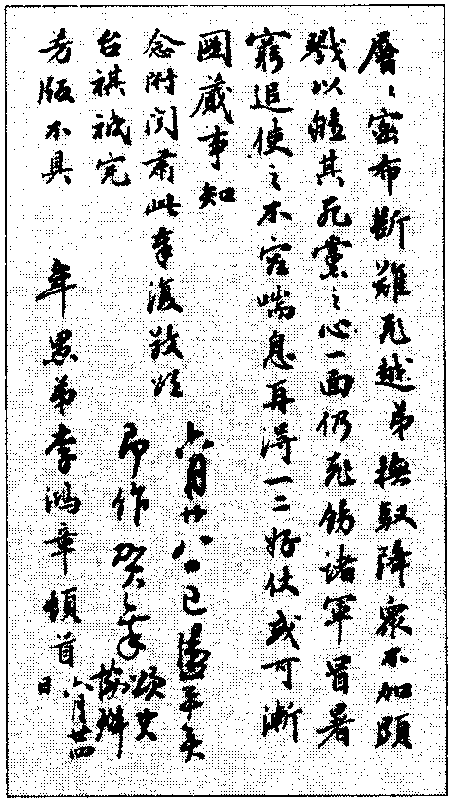 層〻密布斷難飛越弟撫馭降衆不加顯
戮以離其死黨之心一面仍飛飭諸軍冒暑
窮追使之不容喘息再得一二好仗或可漸
圖蕆事知
念附聞肅此奉復敬
台祺祗完
芳版不具 年愚弟李鴻章頓首 六月廿四日
六月廿八日已平矣
即作